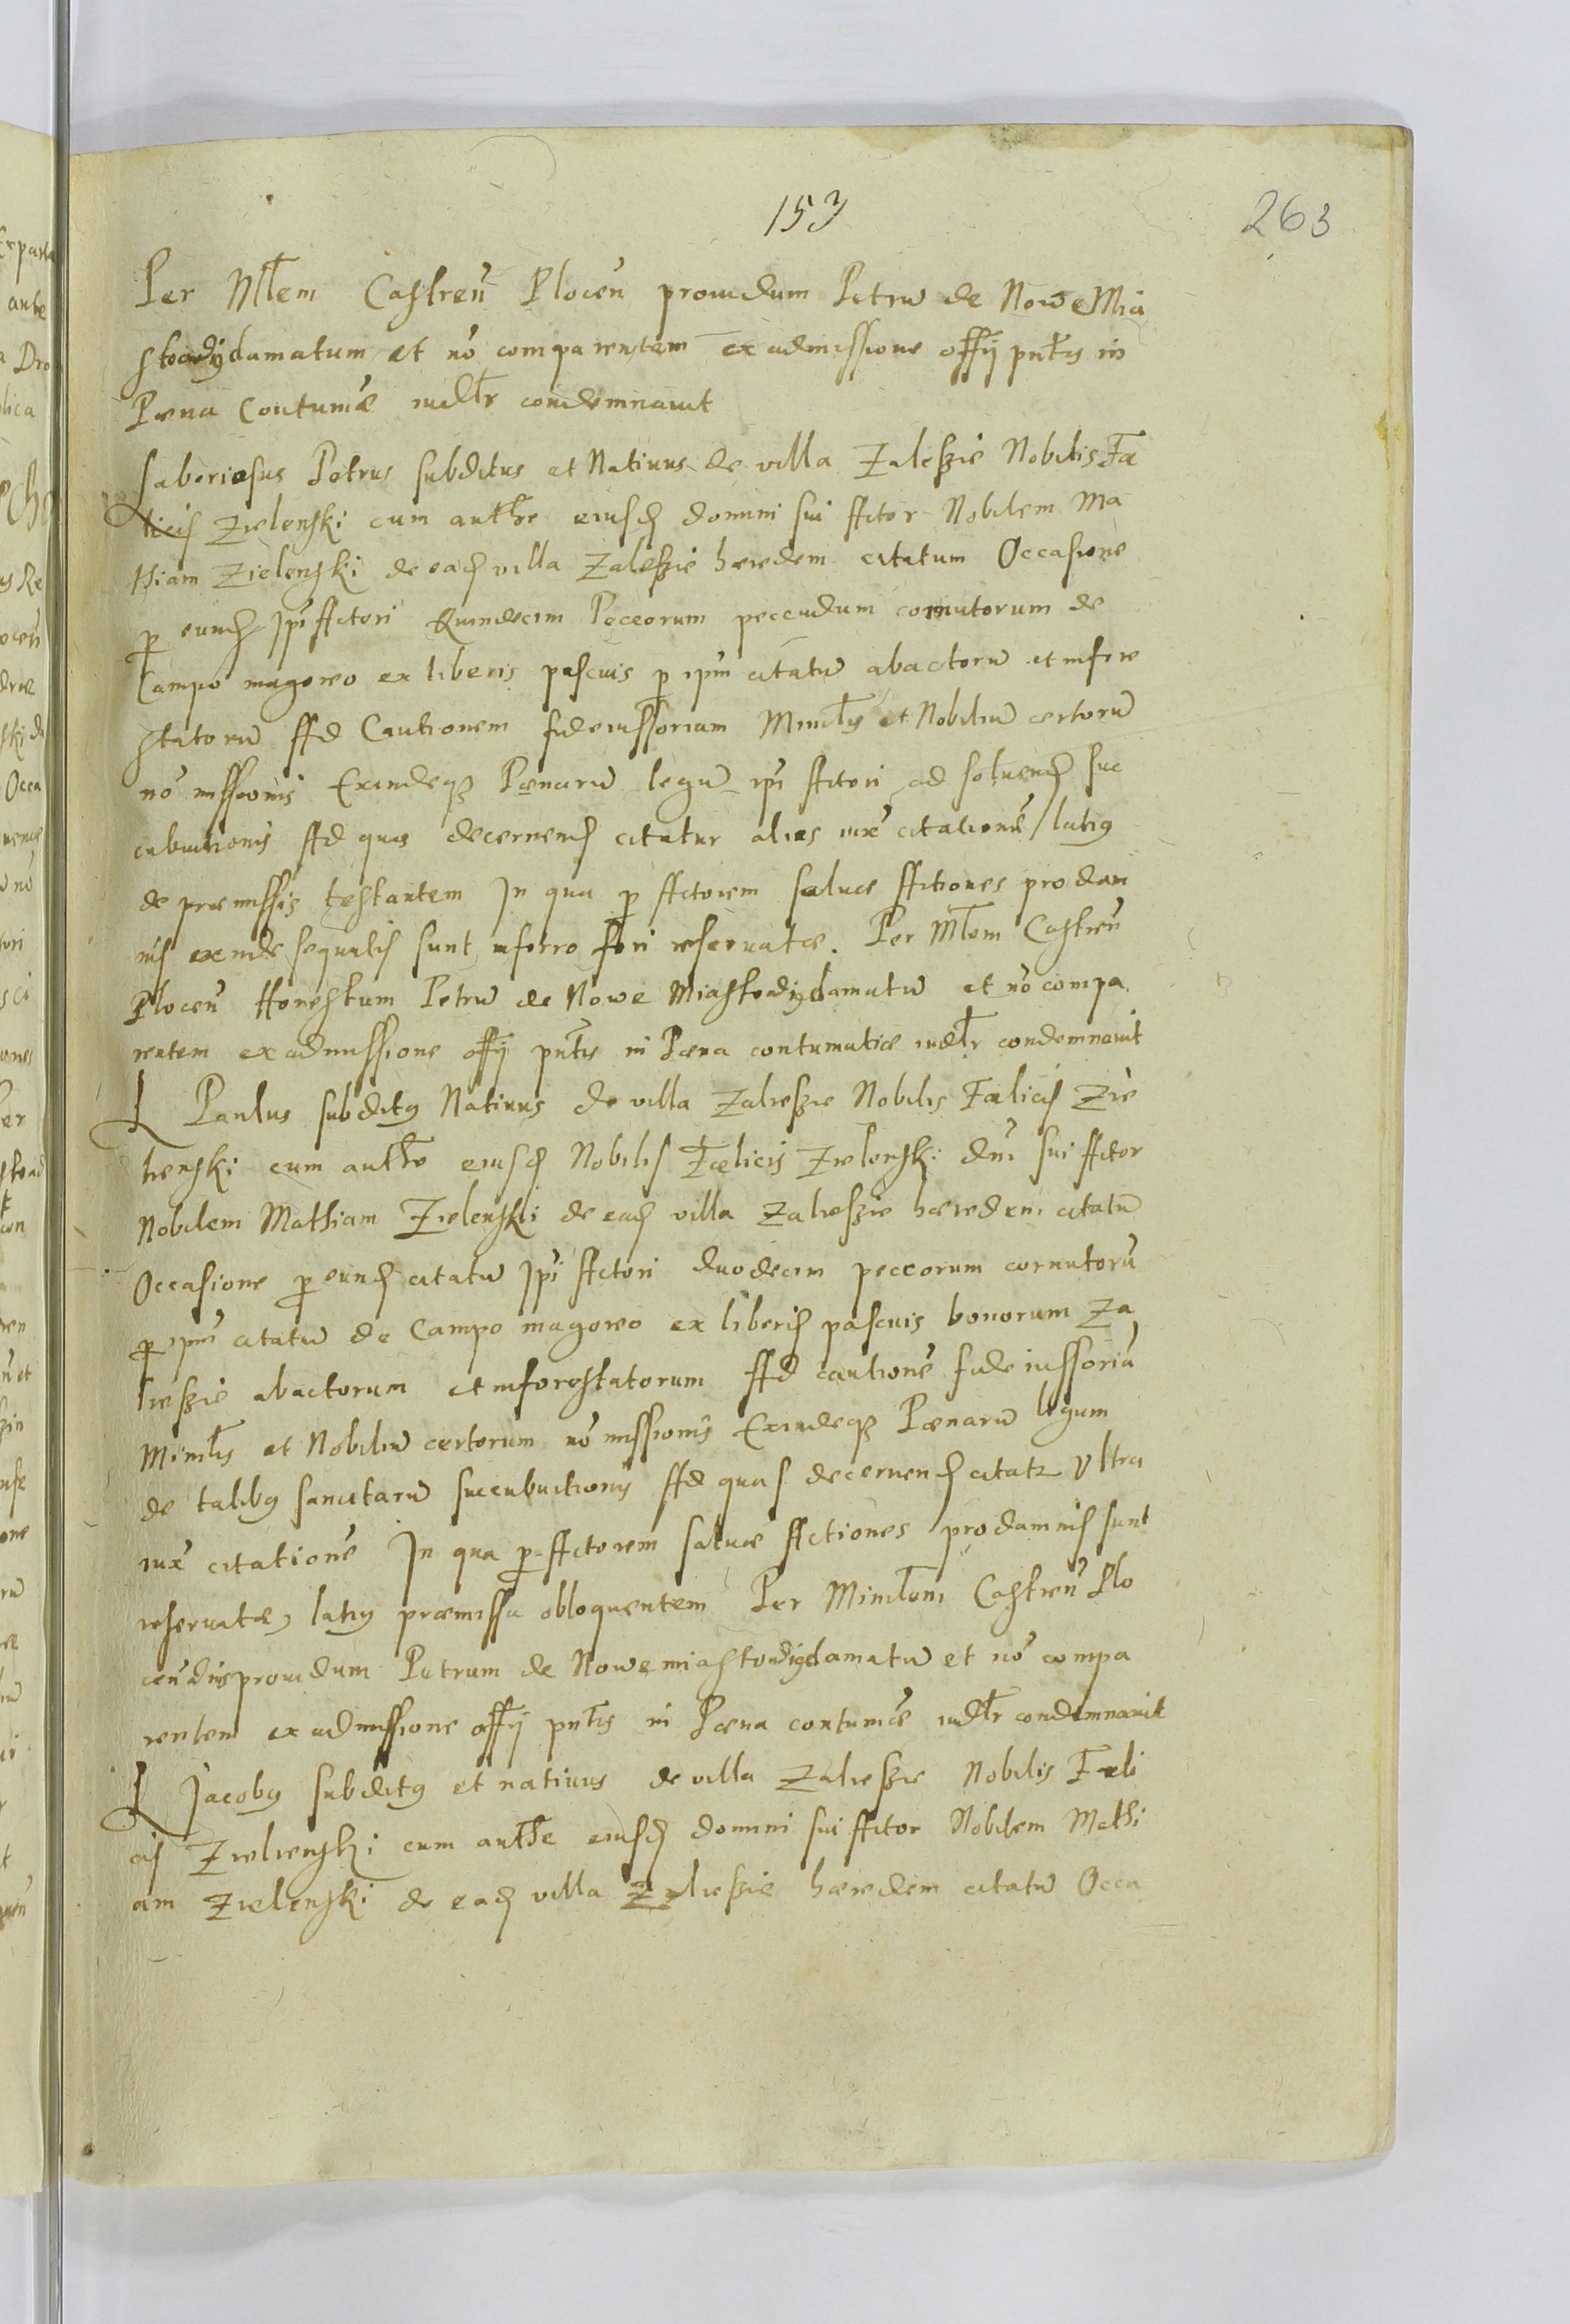 153
263
Per Mtem Castren̄ Plocen̄ prouidum Petrū de Nowe Mia
sto adydamatum et nō comparentem ex admissione offii pntis in
Pœna Contumaē iudtr condemnauit
Laboriosus Petrus subditus et Natiuus de villa Zaleszie Nobilis Fæ
licis Zielenski cum authe eiusd domini sui Actor Nobilem Ma
thiam Zielenski de ead villa Zaleszie hæredem citatum Occasione
p eund ipī Actori Quindecim Pecorum peccudum cornutorum de
Campo magowo ex liberis pascuis p ipm citatū abactorū et infore
statorū Ad Cautionem fideiussoriam Mintis et Nobiliū certorū
nō missionis Exindeq Pœnarū legū ipī Actori ad soluend suc
cubuitionis Ad quas decernend citatur alias iux citationē latiq
de præmissis testantem In qua p Actorem saluæ Actiones pro dam
nis exinde sequutis sunt in forro fori reseruatæ. Per Mtem Castren̄
Plocen̄ Honestum Petrū de Nowe Miasto adydamatū et nō compa
rentem ex admissione offii pntis in Pœna contumatiæ iudtr condemnauit
L Paulus subditq Natiuus de villa Zalieszie Nobilis Fælicis Zie
lienski cum authe eiusd Nobilis Fælicis Zielenski dni sui Actor
Nobilem Mathiam Zielenski de ead villa Zalieszie hæredem citatū
Occasione p eund citatū ipī Actori duodecim peccorum cornutorū
p ipm citatū de Campo magowo ex liberis pascuis bonorum Za
lieszie abactorum et inforestatorum Ad cautionē fideiussoriā
Mintis et Nobiliū certorum nō missionis Exindeq Pœnarū legum
de talibq sancitarū succubuitionis Ad quas decernend citatr Vltra
iux citationē In qua p Actorem saluæ Actiones pro damnis sunt
reseruatæ, latiq præmissa obloquentem Per Mintem Castren̄ Plo
cen̄ prouidum Petrum de Nowemiasto adydamatū et nō compa
rentem ex admissione offii pntis in Pœna contumaē iudtr condemnauit
L Jacobq subditq et natiuus de villa Zalieszie Nobilis Fæli
cis Zielienski cum authe eiusd domini sui Actor Nobilem Mathi
am Zielenski de ead villa Zalieszie hæredem citatū Occa